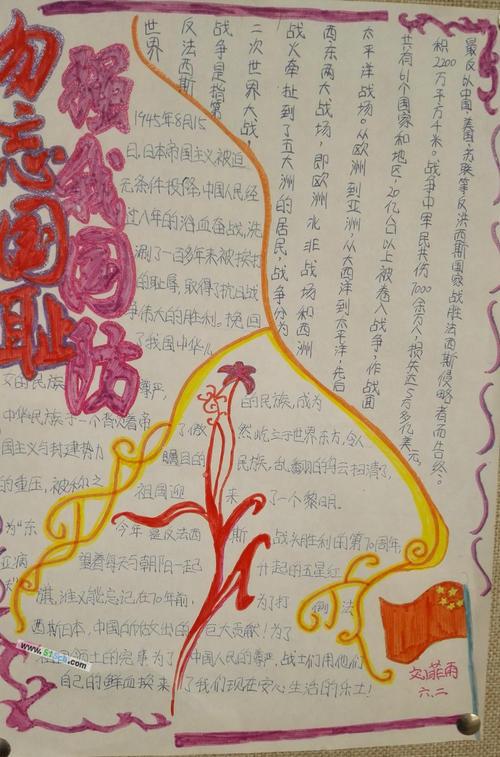 勿忘国耻
强我国防
世界
反法西斯
战争是指第
二次世界大战,
战火牵扯到了五大洲的居民,战争分为
西东两大战场,即欧洲北非战场和西洲
太平洋战场。从欧洲到亚洲,从大西洋到太平洋,先后
共有61个国家和地区、20亿人口以上被卷入战争,作战面
积2200万平方千米。战争中军民共伤7000余万人,损失达5万多亿美元。
最反以中国、美国、苏联等反法西斯国家战胜法西斯侵略者而告终。
1945年8月15
日,日本帝国主义被迫
无条件投降,中国人民经
过八年的浴血奋战,洗
涮了一百多年来被
的耻辱,取得了抗日战
争伟大的胜利。挽回
了我国中华儿
的民族 尊严, 的民族,成为
中华民族于一个 着帝 了傲然屹立于世界东方,令人
国主义与封建势力 瞩目的民族,乱翻的乌云扫清了,
的重压,被称之 祖国迎来了一个黎明。
为"东 今年是反法西斯战争胜利的第70周年,
亚病 望着每天与朝阳一起升起的五星红
夫" 旗,谁又能忘记在70年前,为了打倒法
西斯日本,中国所做出的巨大贡献!为了
祖国领土的完事为了中国人民的尊严,战士们用他们
自己的鲜血换来了我们现在安心生活的乐土!
六.二
www.51sch.com